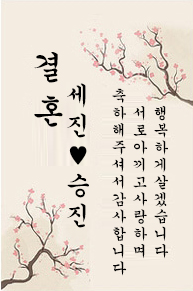 결혼
세진♥승진
행복하게살겠습니다
서로아끼고사랑하며
축하해주셔서감사합니다